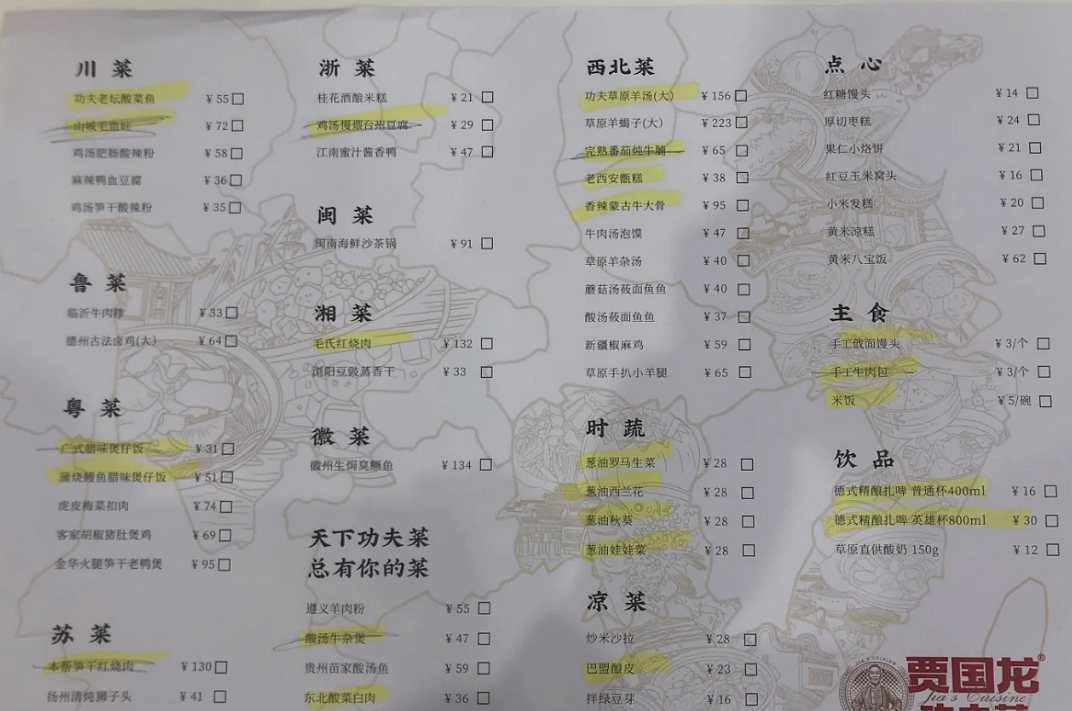 川菜
功夫老坛酸菜鱼 ¥55
山城毛血旺 ¥72
鸡汤肥肠酸辣粉 ¥58
麻辣鸭血豆腐 ¥36
鸡汤笋干酸辣粉 ¥35
鲁菜
临沂牛肉糁 ¥33
德州古法卤鸡(大) ¥64
粤菜
广式腊味煲仔饭 ¥31
蒲烧鳗鱼腊味煲仔饭 ¥51
虎皮梅菜扣肉 ¥74
客家胡椒猪肚煲鸡 ¥69
金华火腿笋干老鸭煲 ¥95
苏菜
本帮笋干红烧肉 ¥130
扬州清炖狮子头 ¥41
浙菜
桂花酒酿米糕 ¥21
鸡汤慢煨台州豆腐 ¥29
江南蜜汁酱香鸭 ¥47
闽菜
闽南海鲜沙茶锅 ¥91
湘菜
毛氏红烧肉 ¥132
浏阳豆豉蒸香干 ¥33
徽菜
徽州生焗臭鳜鱼 ¥134
天下功夫菜
总有你的菜
遵义羊肉粉 ¥55
酸汤牛杂煲 ¥47
贵州苗家酸汤鱼 ¥59
东北酸菜白肉 ¥36
西北菜
功夫草原羊汤(大) ¥156
草原羊蝎子(大) ¥223
完熟番茄炖牛腩 ¥65
老西安甑糕 ¥38
香辣蒙古牛大骨 ¥95
牛肉汤泡馍 ¥47
草原羊杂汤 ¥40
蘑菇汤莜面鱼鱼 ¥40
酸汤莜面鱼鱼 ¥37
新疆椒麻鸡 ¥59
草原手扒小羊腿 ¥65
时蔬
葱油罗马生菜 ¥28
葱油西兰花 ¥28
葱油秋葵 ¥28
葱油娃娃菜 ¥28
凉菜
炒米沙拉 ¥28
巴盟酿皮 ¥23
拌绿豆芽 ¥16
点心
红糖馒头 ¥14
厚切枣糕 ¥24
果仁小烙饼 ¥21
红豆玉米窝头 ¥16
小米发糕 ¥20
黄米凉糕 ¥27
黄米八宝饭 ¥62
主食
手工戗面馒头 ¥3/个
手工牛肉包 ¥3/个
米饭 ¥5/碗
饮品
德式精酿扎啤 普通杯400ml ¥16
德式精酿扎啤 英雄杯800ml ¥30
草原直供酸奶 150g ¥12
贾国龙®
Jia's Cuisine